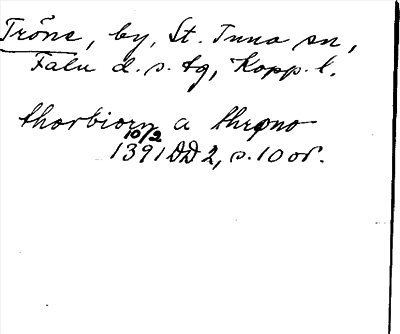 Tröns, by, St. Tuna sn,
Falu d. s. tg, Kopp. l.
thorbiorn a thrøno
10/2
1391 DD 2, s. 10 or.